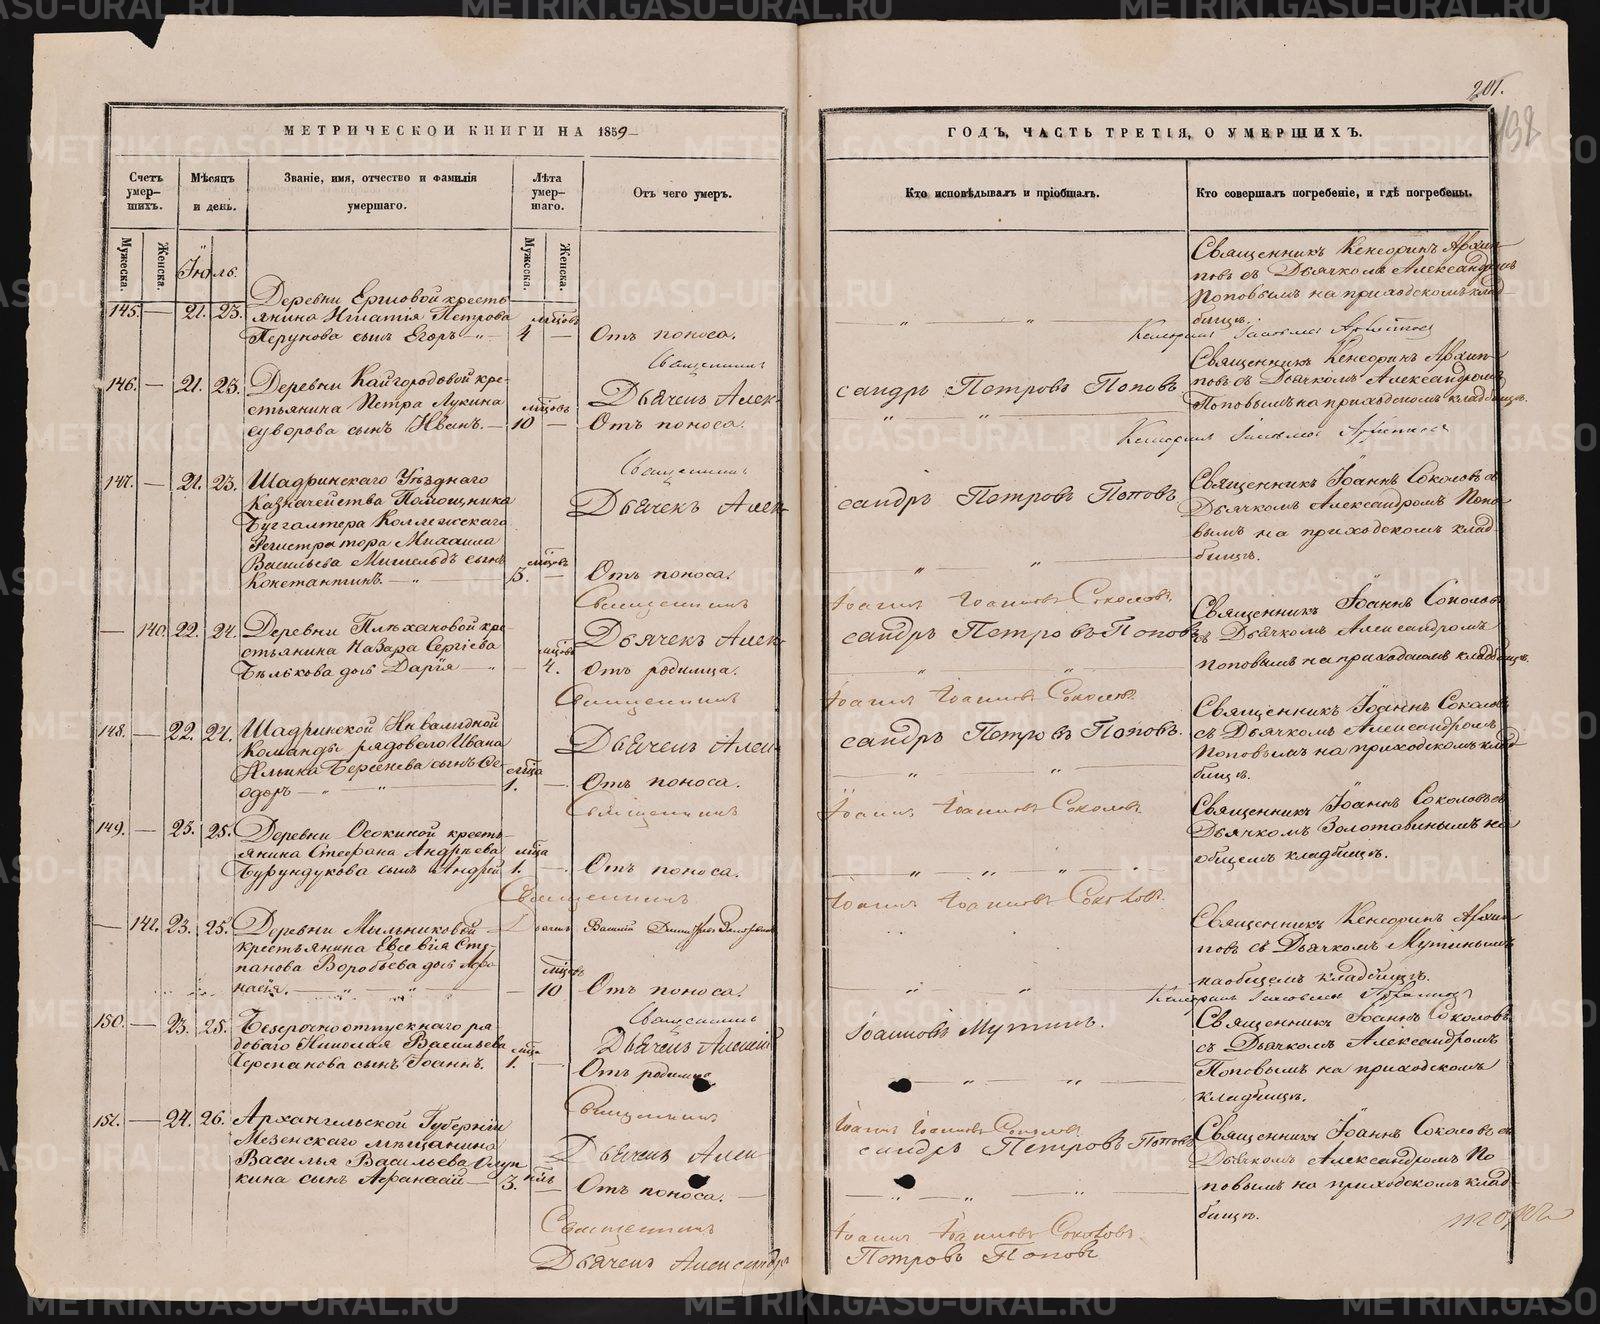 201.
132
МЕТРИЧЕСКОЙ КНИГИ НА 1859
ГОДЪ, ЧАСТЬ ТРЕТІЯ, О УМЕРШИХЪ.
Счетъ умер-шихъ.
Мѣсяцъ и день.
Званіе, имя, отчество и фамилія умершаго.
Лѣта умер-шаго.
Отъ чего умеръ.
Кто исповѣдывалъ и пріобщалъ.
Кто совершалъ погребеніе, и гдѣ погребены.
Мужеска.
Женска.
Мужеска.
Женска.
Іюль.
145. — 21. 23.
Деревни Ершовой кресть
янина Игнатія Петрова
Перунова сынъ Егоръ
мѣсцовъ
4 —
Отъ поноса.
Священникъ Кенсоринъ Архип
повъ съ Дьячкомъ Александромъ
Поповымъ на приходскомъ клад
бищѣ.
Священникъ
Дьячекъ Александръ Петровъ Поповъ
146. — 21. 23.
Деревни Кайгородовой кре-
стьянина Петра Лукина
Суворова сынъ Иванъ. —
мѣсцовъ
10 —
Отъ поноса.
Священникъ Кенсоринъ Архип
повъ съ Дьячкомъ Александромъ
Поповымъ на приходскомъ кладбищѣ.
Священникъ
Дьячекъ Александръ Петровъ Поповъ
147. — 21. 23.
Шадринскаго Уѣзднаго
Казначейства Помощника
Бухгалтера Коллежскаго
Регистратора Михаила
Васильева сынъ
Константинъ.
мѣсцовъ
5. —
Отъ поноса.
Священникъ Іоаннъ Соколовъ съ
Дьячкомъ Александромъ Попо
вымъ на приходскомъ клад
бищѣ.
Священникъ Іоаннъ Іоанновъ Соколовъ.
Дьячекъ Александръ Петровъ Поповъ
— 140. 22. 24.
Деревни Плѣхановой кре
стьянина Назара Сергіева
Бѣлькова дочь Дарія —
4.
Отъ родимца.
Священникъ Іоаннъ Соколовъ
съ Дьячкомъ Александромъ
Поповымъ на приходскомъ кладбищѣ.
Священникъ Іоаннъ Іоанновъ Соколовъ.
Дьячекъ Александръ Петровъ Поповъ.
148. — 22. 24.
Шадринской Инвалидной
Команды рядоваго Ивана
Ильина сынъ Ѳе
одоръ
мѣсца
1. —
Отъ поноса.
Священникъ Іоаннъ Соколовъ
съ Дьячкомъ Александромъ
Поповымъ на приходскомъ клад
бищѣ.
Священникъ Іоаннъ Іоанновъ Соколовъ.
149. — 23. 25.
Деревни Осокиной кресть-
янина Стефана Андрѣева
Бурундукова сынъ Андрей
мѣсца
1. —
Отъ поноса.
Священникъ Іоаннъ Соколовъ съ
Дьячкомъ Золотавинымъ на
общемъ кладбищѣ.
Священникъ Іоаннъ Іоанновъ Соколовъ.
Дьячекъ Василій
— 141. 23. 25.
Деревни Мыльниковой
крестьянина Евсевія Сте
панова Воробьева дочь Афа
насія.
мѣсцовъ
— 10
Отъ поноса.
Священникъ Кенсоринъ Архип
повъ съ Дьячкомъ Мутинымъ
на общемъ кладбищѣ.
Священникъ
Дьячекъ Алексій Іоанновъ Мутинъ.
150. — 23. 25.
Безсрочноотпускнаго ря
доваго Николая Васильева
Черепанова сынъ Іоаннъ.
мѣсца
1. —
Отъ родимца
Священникъ Іоаннъ Соколовъ
съ Дьячкомъ Александромъ
Поповымъ на приходскомъ
кладбищѣ.
Священникъ Іоаннъ Іоанновъ Соколовъ
Дьячекъ Александръ Петровъ Поповъ
151. — 24. 26.
Архангельской Губерніи
Мезенскаго мѣщанина
Василья Васильева
сынъ Афанасій —
3. —
Отъ поноса. —
Священникъ Іоаннъ Соколовъ съ
Дьячкомъ Александромъ По
повымъ на приходскомъ клад-
бищѣ.
Священникъ Іоаннъ Іоанновъ Соколовъ.
Дьячекъ Александръ Петровъ Поповъ
METRIKI.GASO-URAL.RU